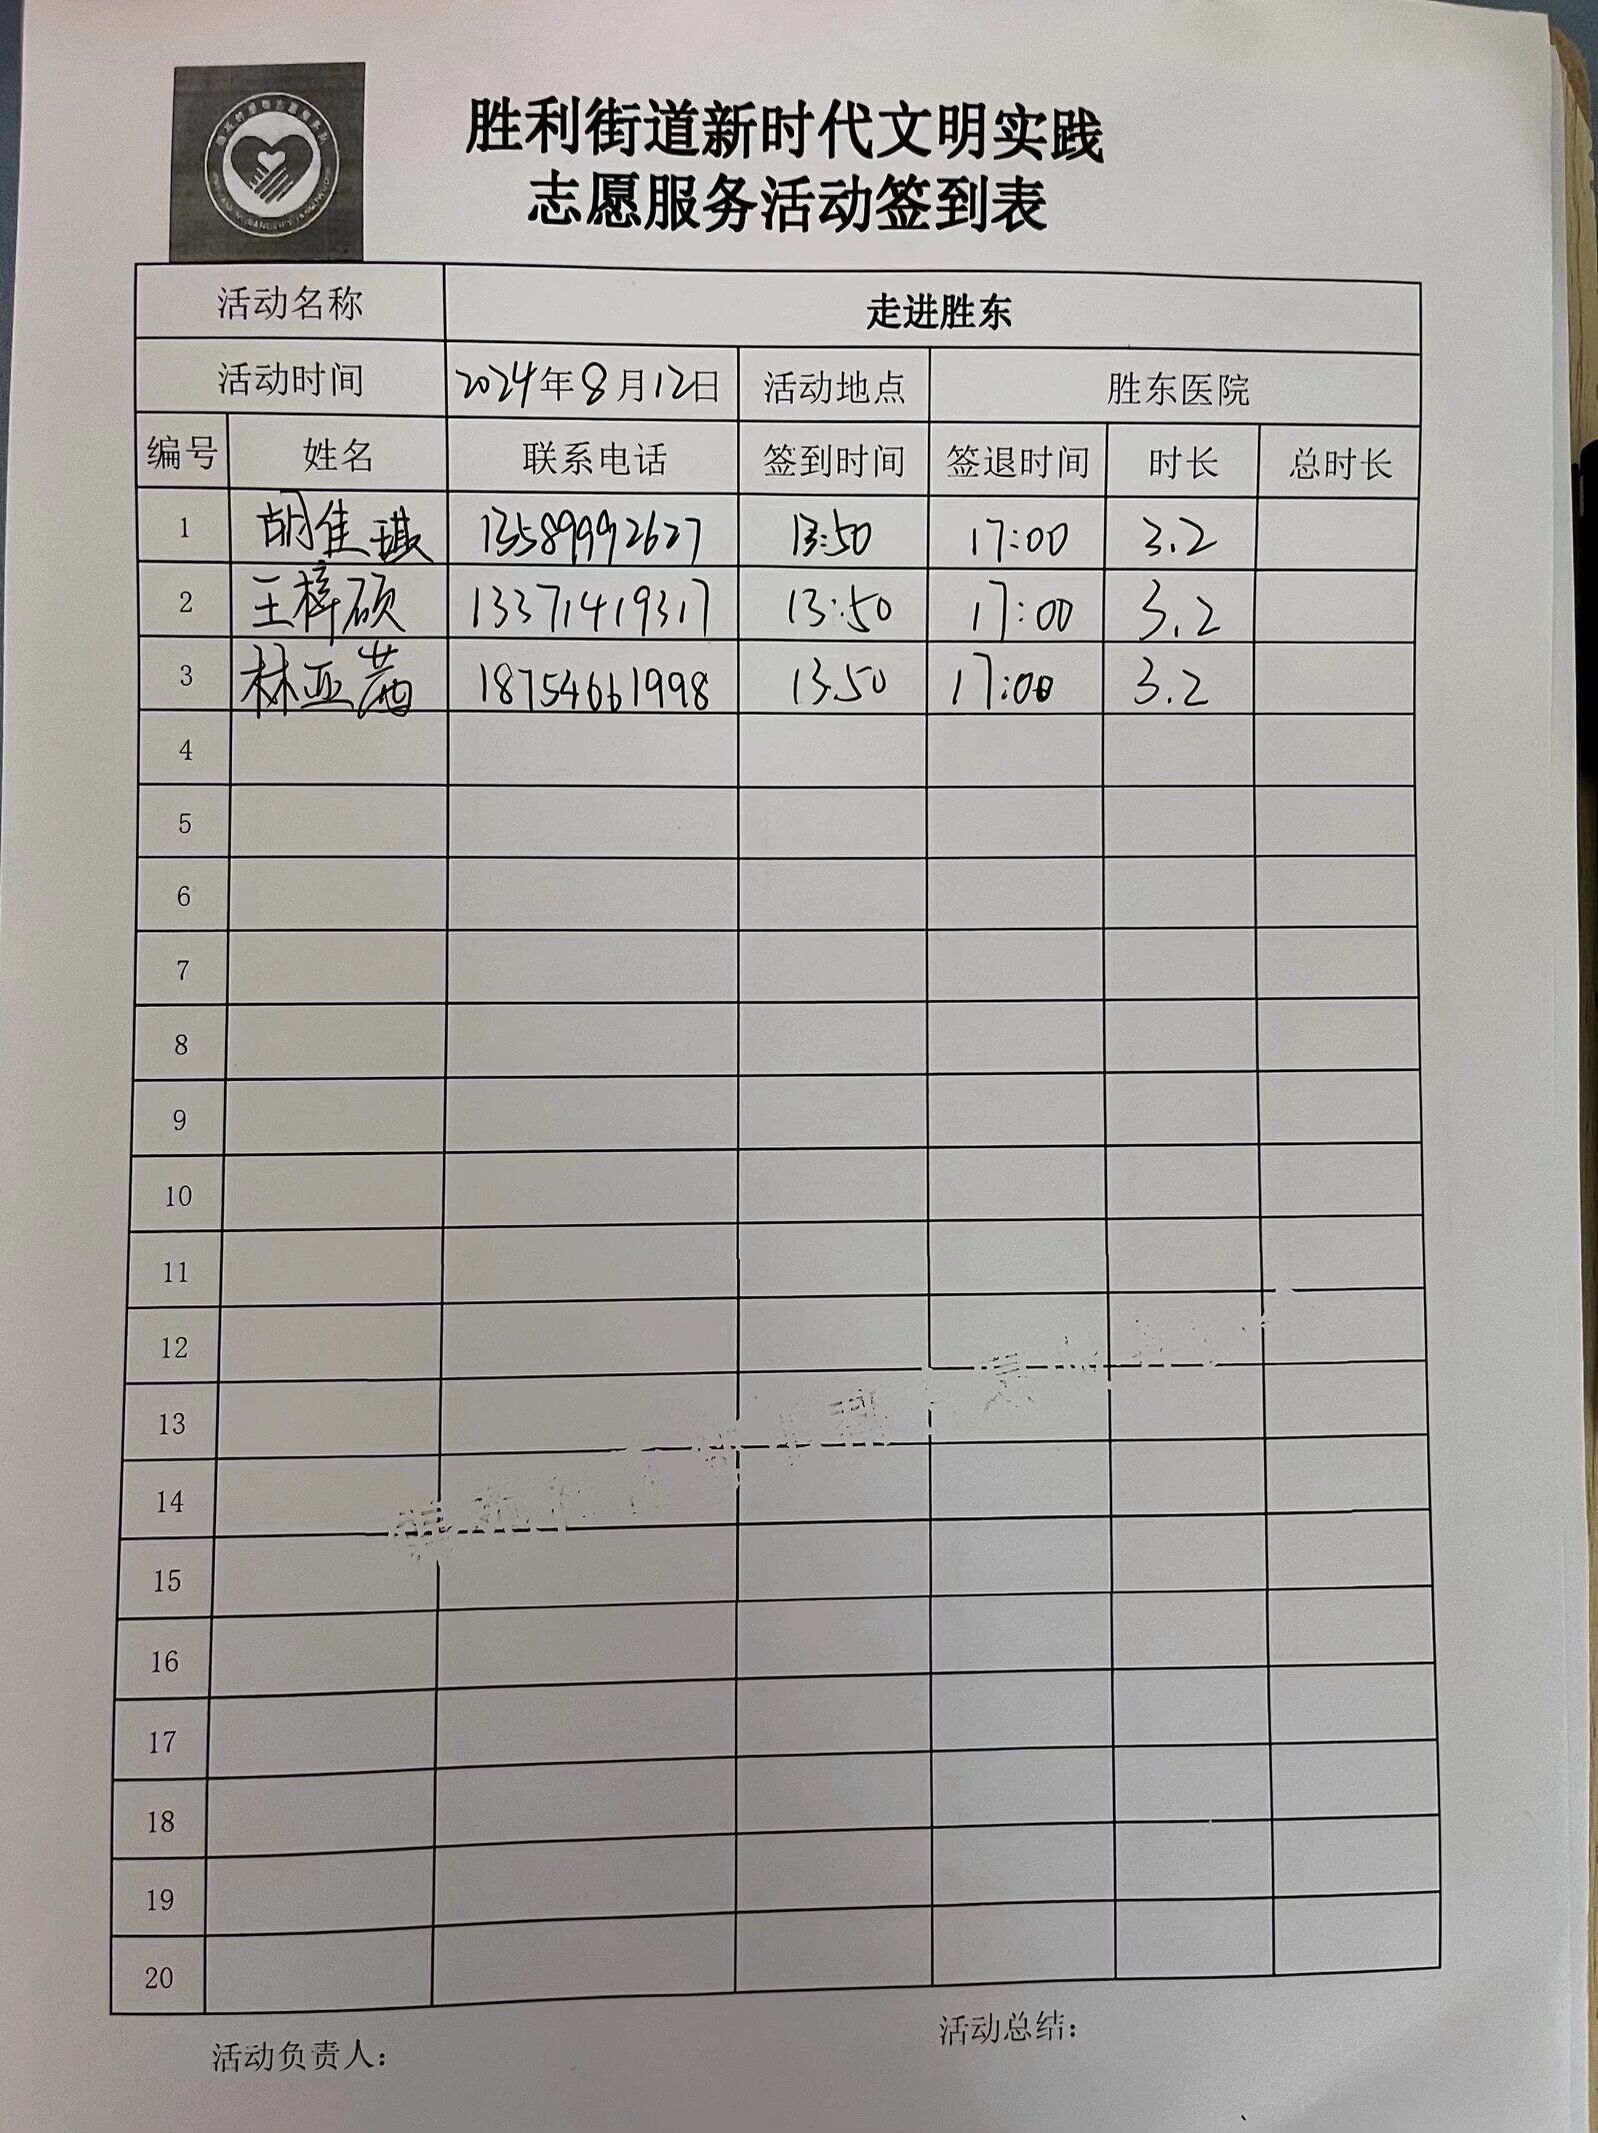 胜利街道新时代文明实践
志愿服务活动签到表
活动名称 走进胜东
活动时间 2024年8月12日 活动地点 胜东医院
编号 姓名 联系电话 签到时间 签退时间 时长 总时长
1 胡佳琪 13589992627 13:50 17:00 3.2
2 王梓硕 13371419317 13:50 17:00 3.2
3 林亚茜 18754661998 13.50 17:00 3.2
4
5
6
7
8
9
10
11
12
13
14
15
16
17
18
19
20
活动负责人: 活动总结: